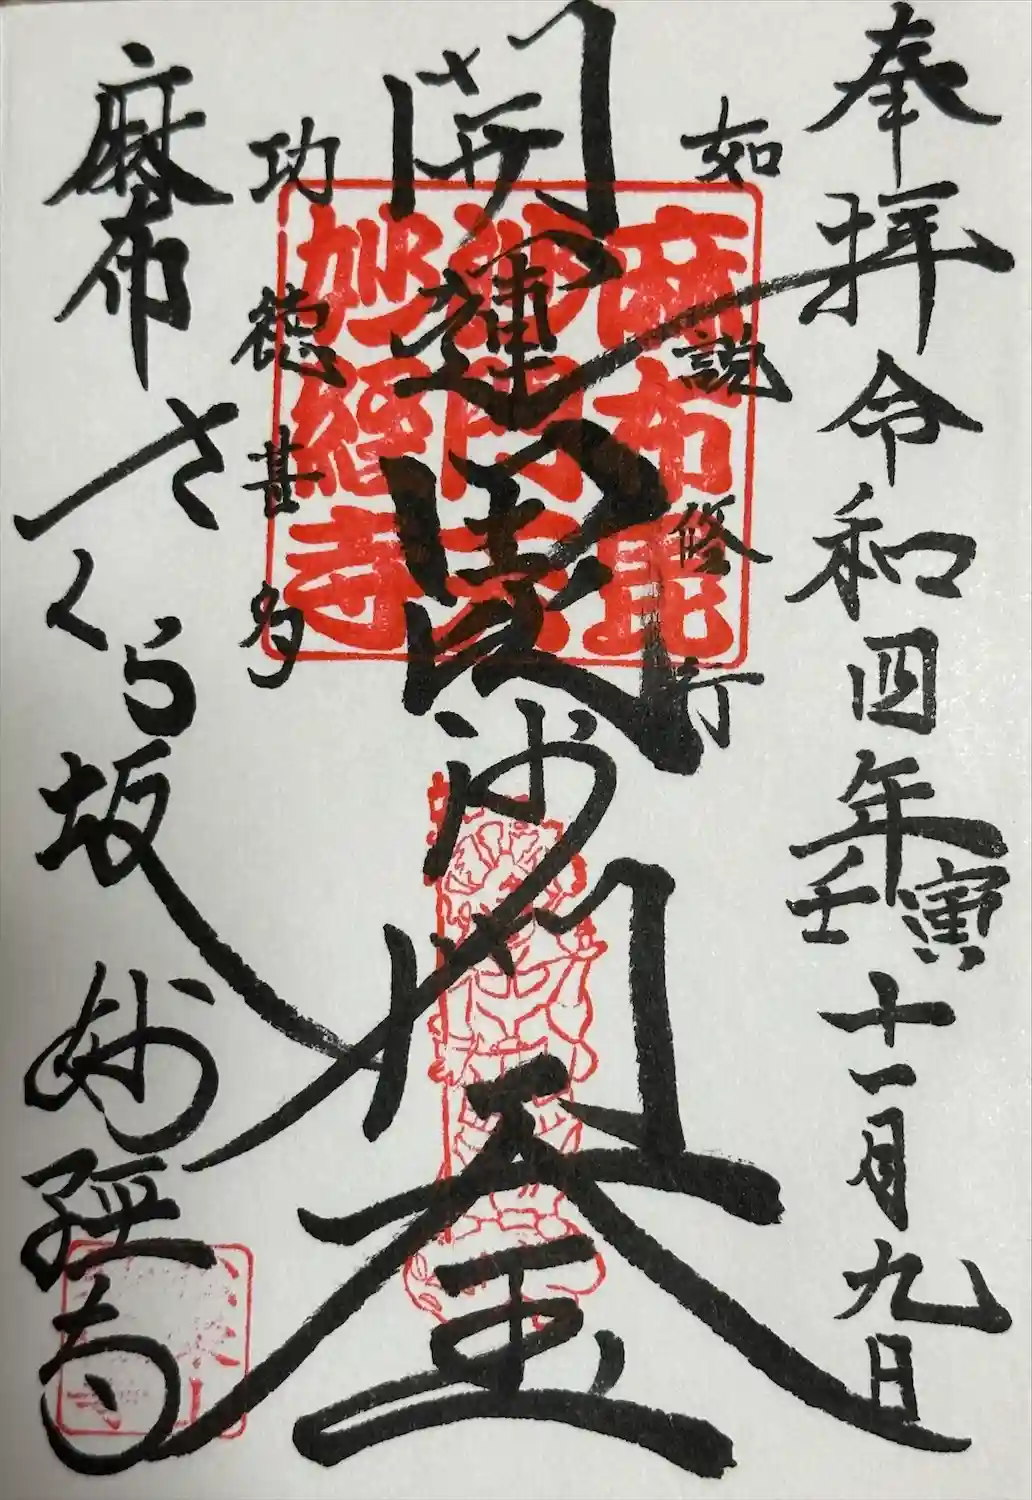 奉拝 令和四年壬寅十一月九日
如説修行
開運毘沙門天王
功徳甚多
麻布さくら坂 妙経寺
麻布毘
沙門天
妙經寺